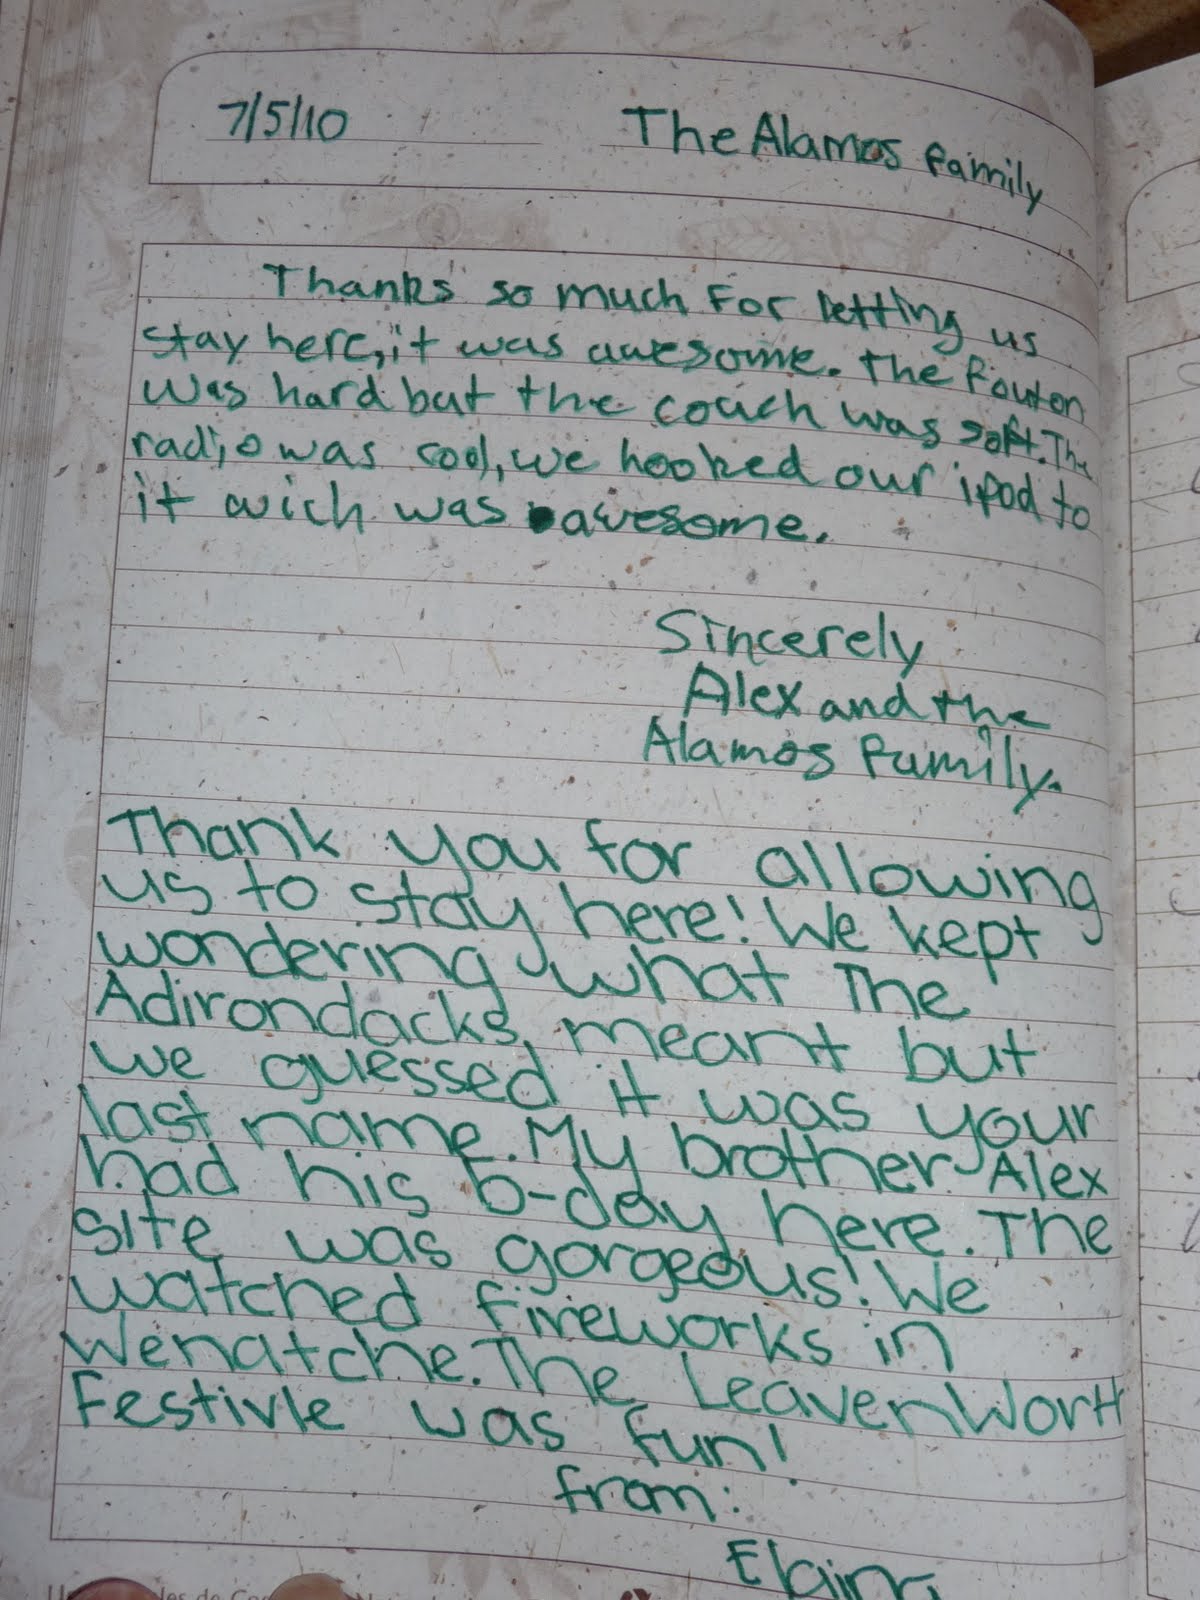 7/5/10
The Alamos family
Thanks so much For letting us
stay here, it was awesome. The Fouton
was hard but the couch was soft. The
radio was cool, we hooked our ipod to
it wich was awesome.
Sincerely
Alex and the
Alamos Family.
Thank you for allowing
us to stay here! We kept
wondering what The
Adirondacks, meant but
we guessed it was your
last name. My brother Alex
had his b-day here. The
site was gorgeous! We
watched fireworks in
Wenatche. The LeavenWorth
Festivle was fun!
from: